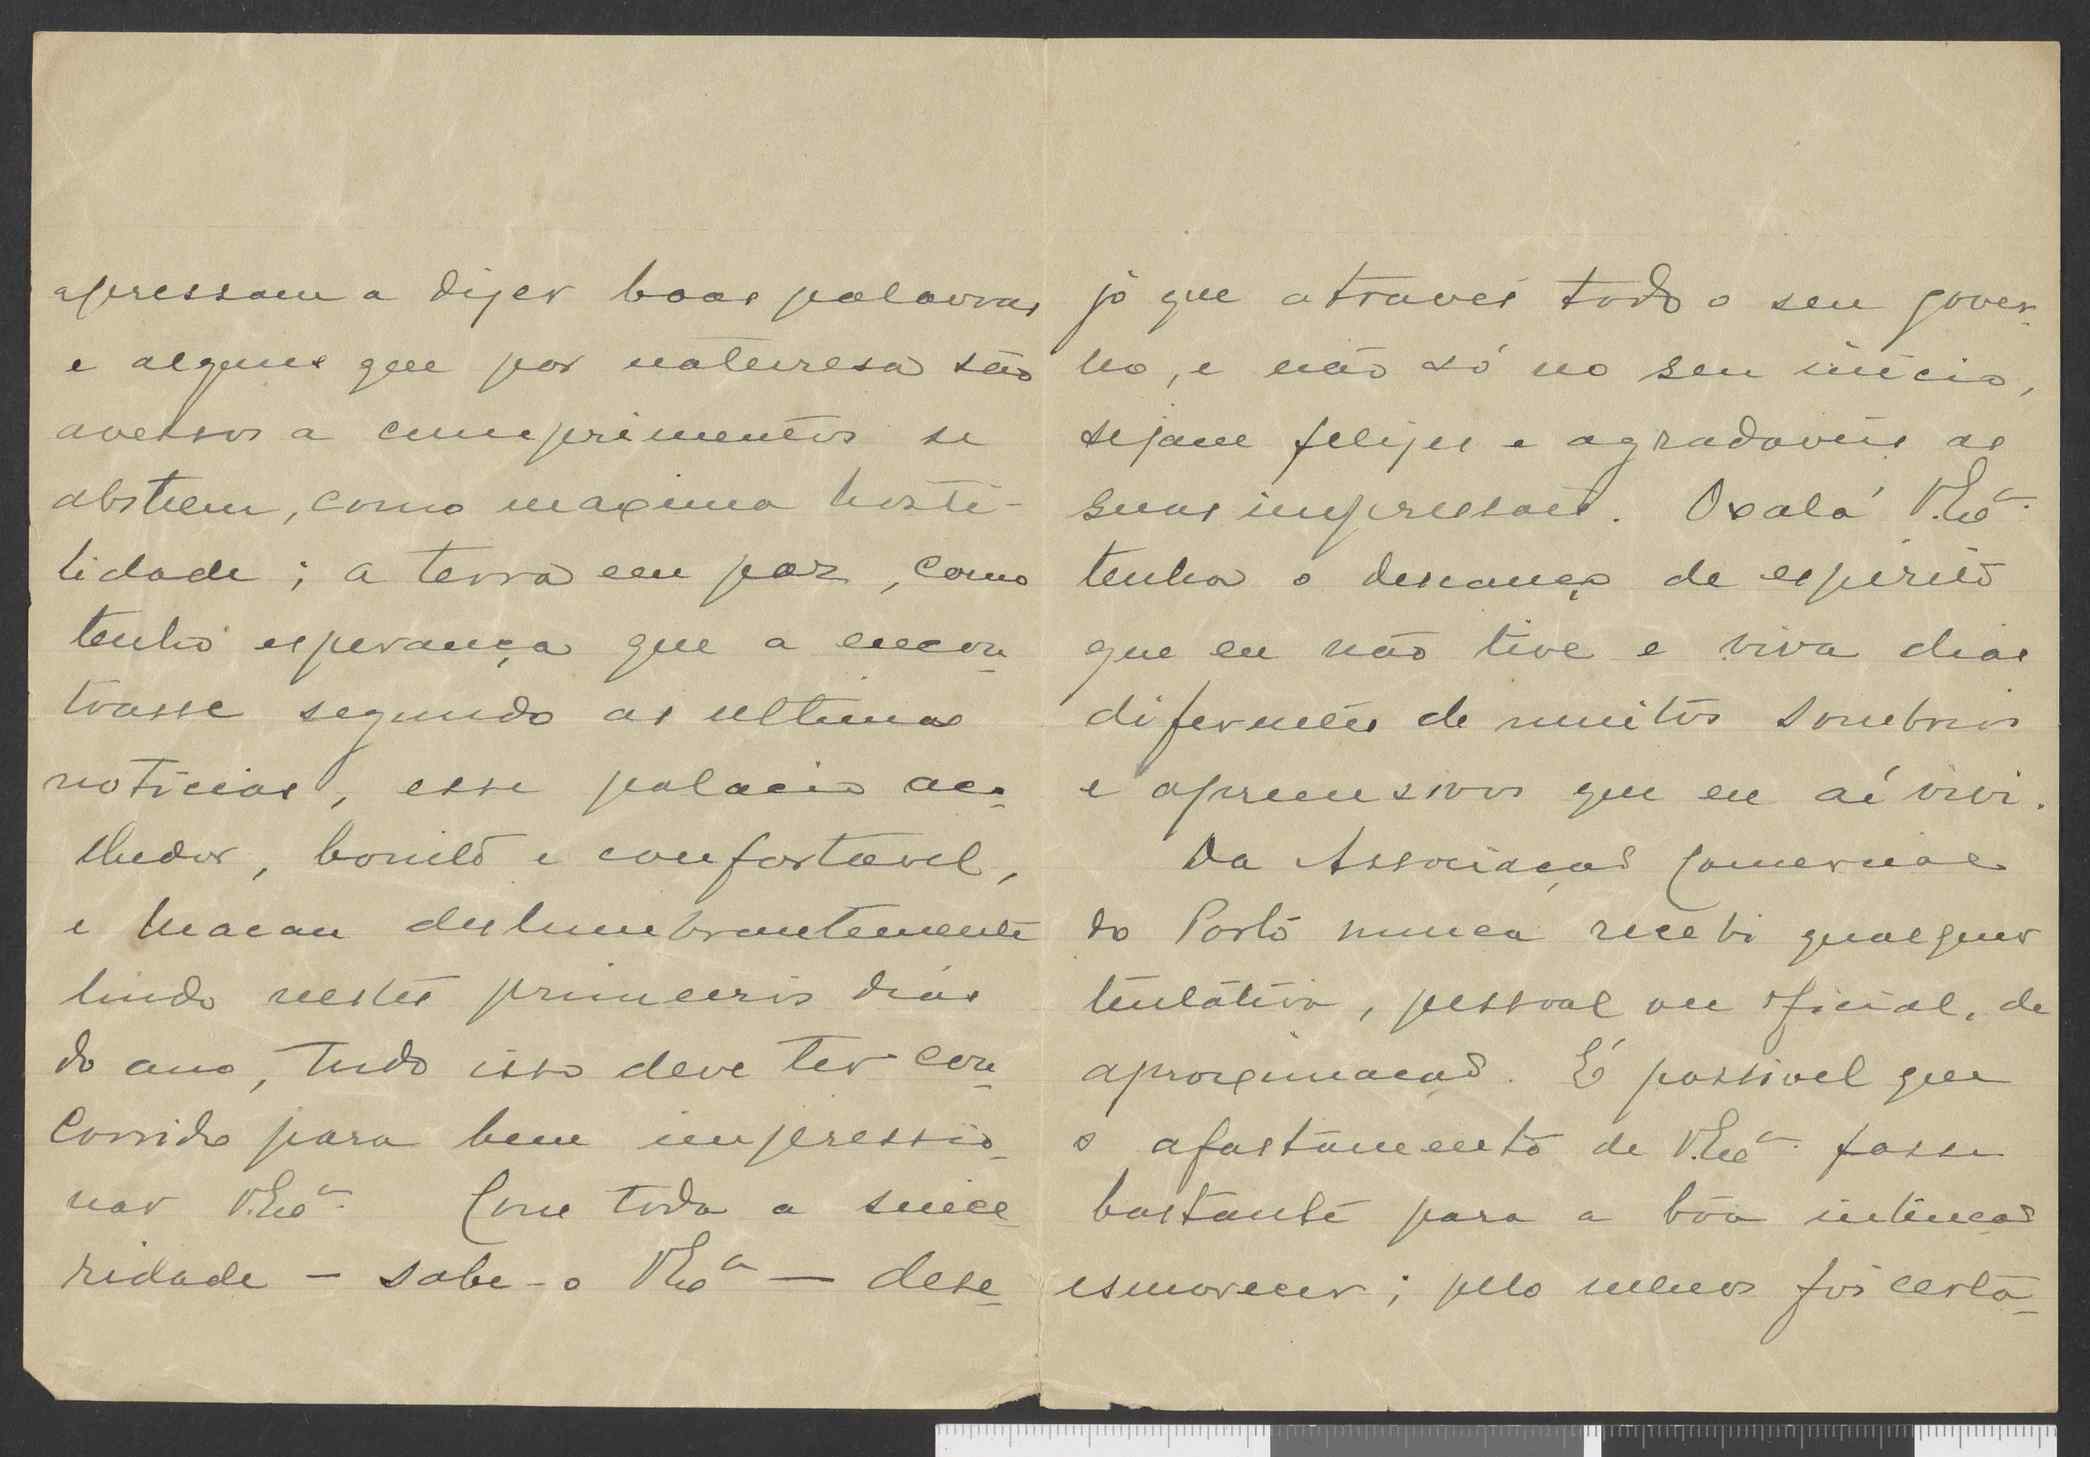 apressam a dizer boas palavras
e alguns que por natureza são
avessos a cumprimentos se
abstem, como maxima hosti-
lidade; a terra em paz, como
tenho esperança que a encon-
trasse segundo as ultimas
noticias, esse palacio aco-
lhedor, bonito e confortavel,
e Macau deslumbrantemente
lindo nestes primeiros dias
do ano, tudo isso deve ter con-
corrido para bem impressio-
nar V.Exª. Com toda a since-
ridade — sabe-o V.Exª — dese-
jo que atravès todo o seu gover-
no, e não só no seu início,
sejam felizes e agradaveis as
suas impressões. Oxalá V.Exª.
tenha o descanço de espirito
que eu não tive e viva dias
diferentes de muitos sombrios
e apreensivos que eu aí vivi.
Da Associação Comercial
do Porto nunca recebi qualquer
tentativa, pessoal ou oficial, de
aproximação. É possivel que
o afastamento de V.Exª. fosse
bastante para a bôa intenção
esmorecer; pelo menos foi certa-